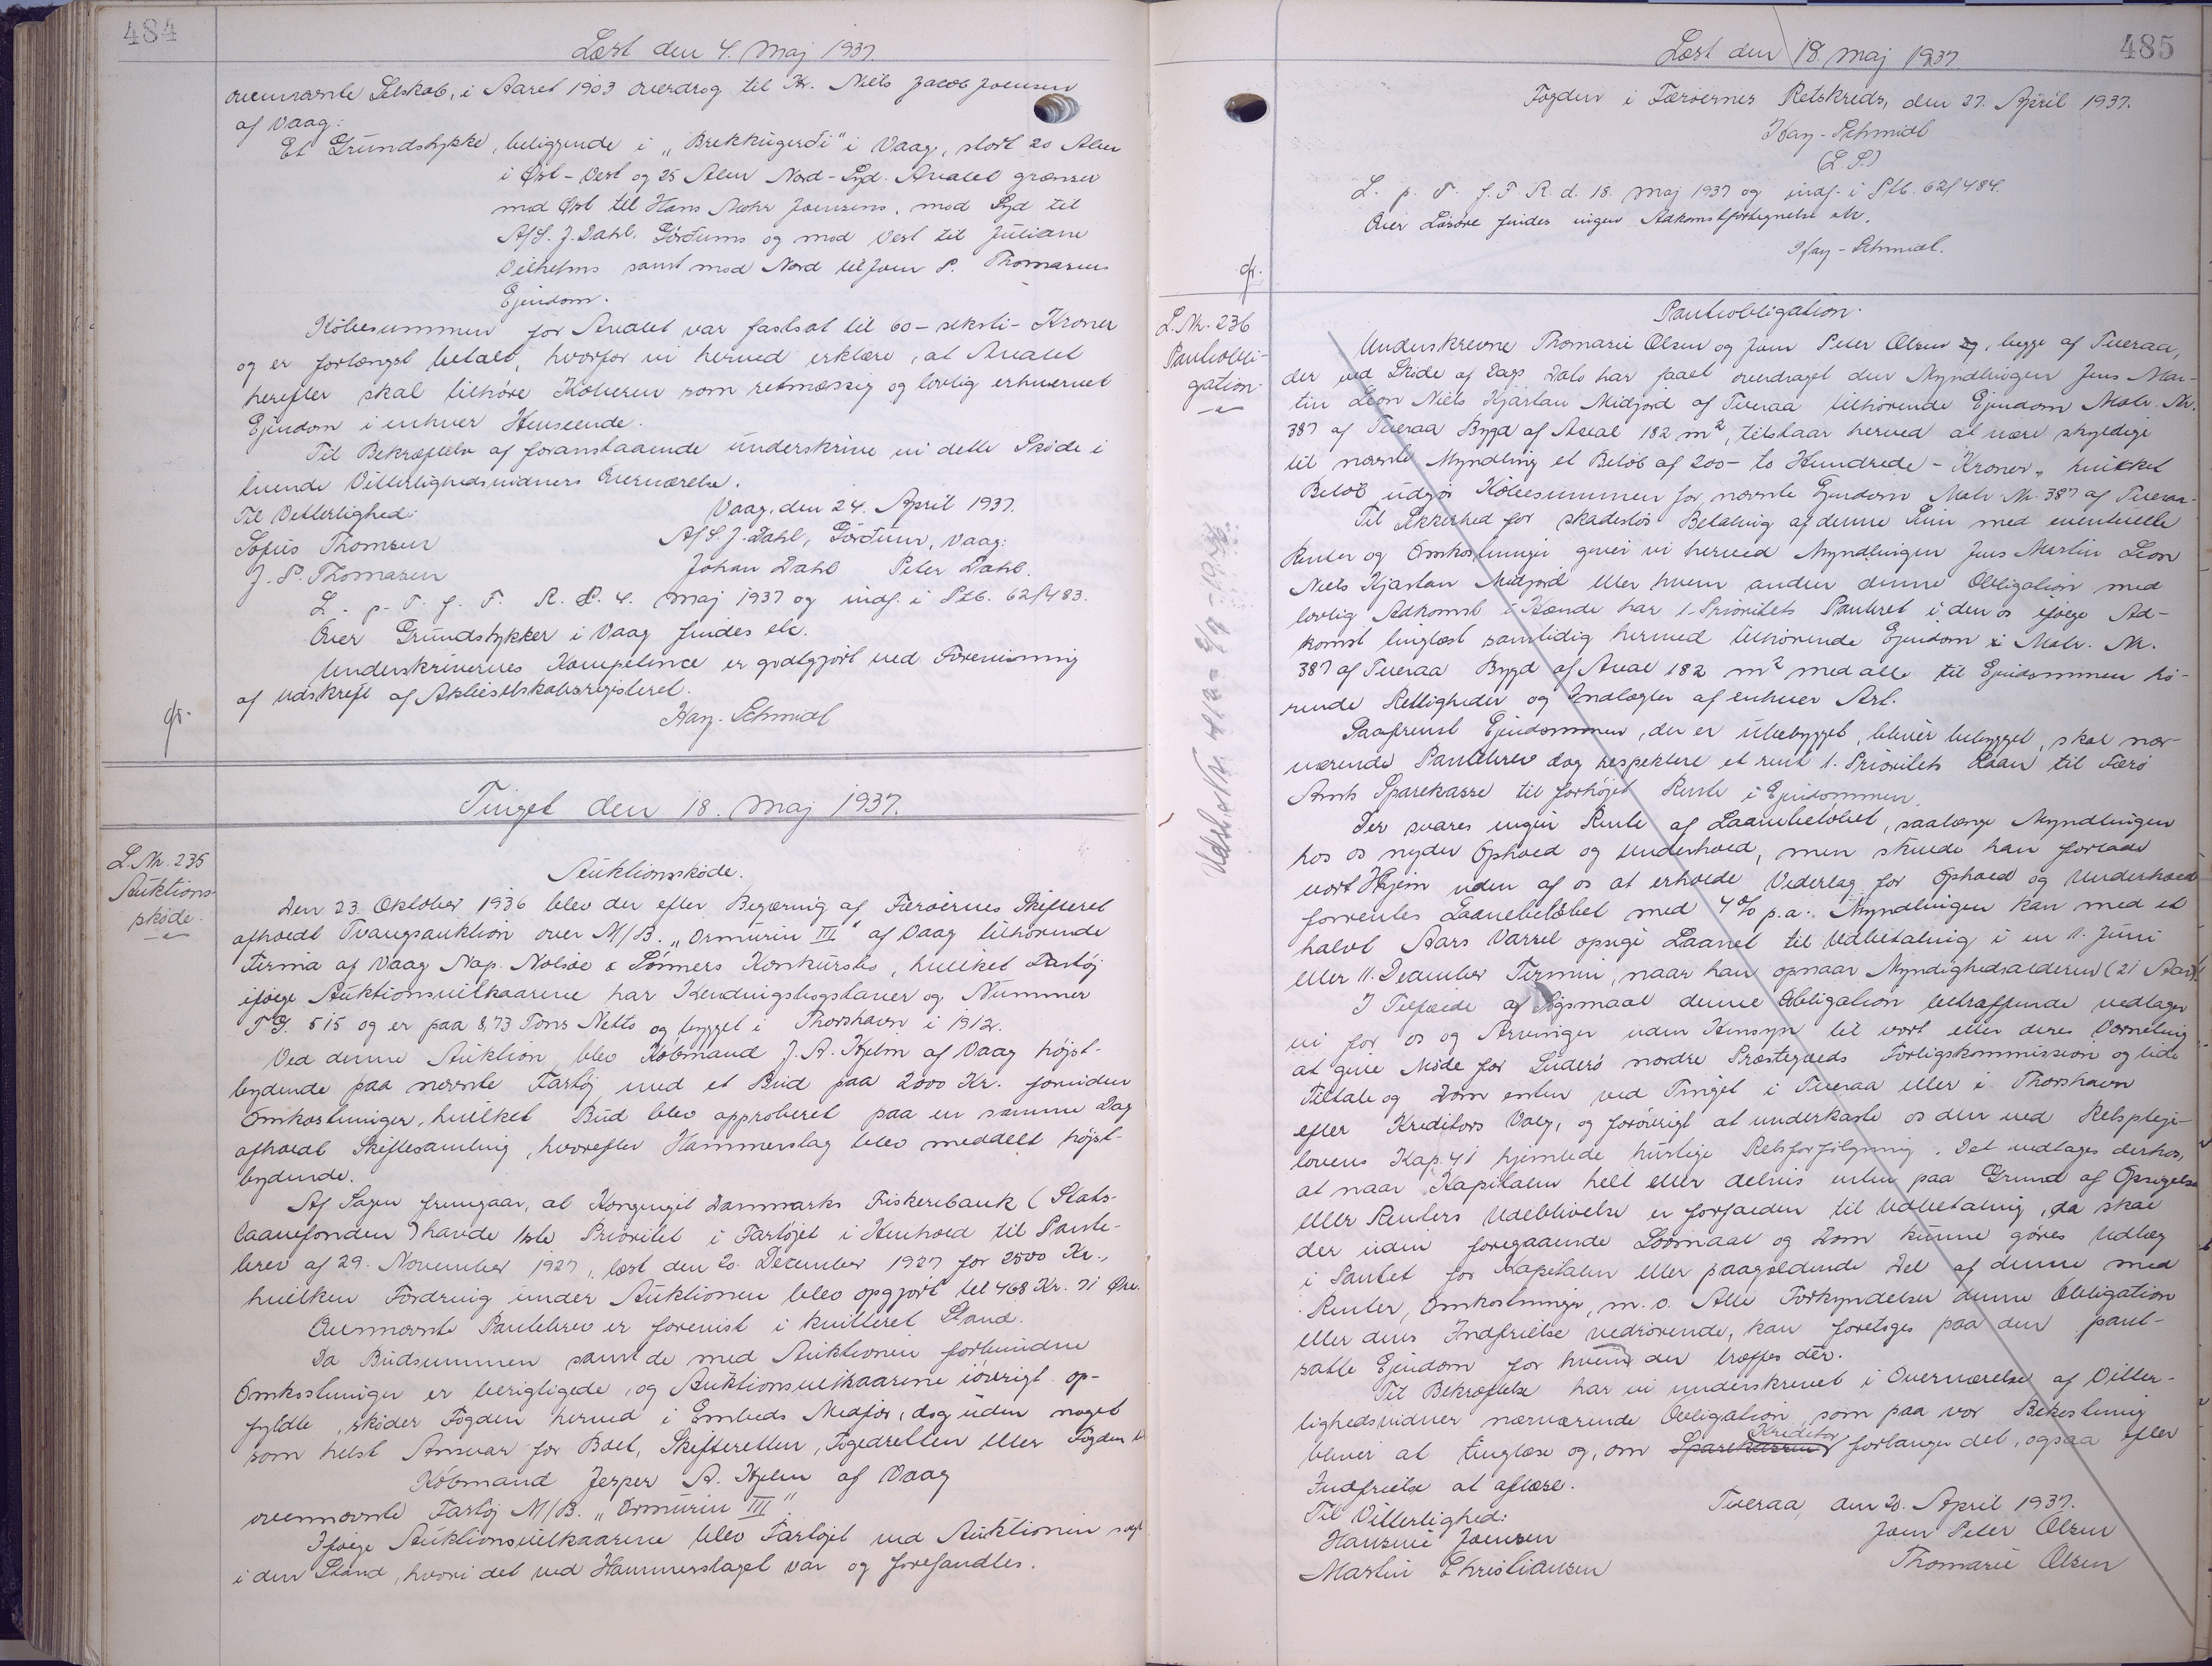 484
Læst den 4. Maj 1937.
ovennævnte Selskab, i Aaret 1903 overdrog til Hr. Niels Jacob Joensen
af Vaag:
Et Grundstykke, beliggende i "Brekkugerði" i Vaag, stort 20 Alen
i Øst-Vest og 25 Alen Nord-Syd. Arealet grænser
mod Øst til Hans Mohr Joensens, mod Syd til
A/S. J. Dahl, Görðums og mod Vest til Juliane
Vilhelms samt mod Nord til Joen P. Thomasens
Ejendom.
Købesummen for Arealet var fastsat til 60 - seksti - Kroner
og er forlængst betalt, hvorfor vi herved erklære, at Arealet
herefter skal tilhøre Køberen som retmæssig og lovlig erhvervet
Ejendom i enhver Henseende.
Til Bekræftelse af foranstaaende underskrive vi dette Skøde i
tvende Vitterlighedsvidners Overværelse.
Vaag, den 24. April 1937.
Til Vitterlighed:
A/S. J. Dahl, Görðum, Vaag:
Sofus Thomsen
Johan Dahl Peter Dahl.
J. P. Thomasen
L. p. T. f. F. R. d. 4. Maj 1937 og indf. i Ptb. 62/483.
Over Grundstykker i Vaag findes etc.
Underskrivernes Kompetence er godtgjort ved Forevisning
af Udskrift af Aktieselskabsregisteret.
Hay-Schmidt
gr.
Tinget den 18. Maj 1937.
L. Nr. 235
Auktions-
skøde.
Auktionsskøde.
Den 23. Oktober 1936 blev der efter Begæring af Færøernes Skifteret
afholdt Tvangsauktion over M/B. "Ormurin III" af Vaag tilhørende
Firma af Vaag Nap. Nolsøe & Sønners Konkursbo, hvilket Fartøj
ifølge Auktionsvilkaarene har Kendingsbogstaver og Nummer
TG. 515 og er paa 8,73 Tons Netto og bygget i Thorshavn i 1912.
Ved denne Auktion blev Købmand J. A. Kjelm af Vaag højst-
bydende paa nævnte Fartøj med et Bud paa 2000 Kr. foruden
Omkostninger, hvilket Bud blev approberet paa en samme Dag
afholdt Skiftesamling, hvorefter Hammerslag blev meddelt højst-
bydende.
Af Sagen fremgaar, at Kongeriget Danmarks Fiskeribank (Stats-
laanefonden) havde 1ste Prioritet i Fartøjet i Henhold til Pante-
brev af 29. November 1927, læst den 20. December 1927 for 2500 Kr.,
hvilken Fordring under Auktionen blev opgjort til 468 Kr. 71 Øre.
Ovennævnte Pantebrev er forevist i kvitteret Stand.
Da Budsummen samt de med Auktionen forbundne
Omkostninger er berigtigede, og Auktionsvilkaarene iøvrigt op-
fyldte, skøder Fogden herved i Embeds Medfør, dog uden noget
som helst Ansvar for Boet, Skifteretten, Fogedretten eller Fogden til
Købmand Jesper A. Kjelm af Vaag
ovennævnte Fartøj M/B. "Ormurin III".
Ifølge Auktionsvilkaarene blev Fartøjet ved Auktionen solgt
i den Stand, hvori det ved Hammerslaget var og forefandtes.
485
Læst den 18. Maj 1937
Fogden i Færøernes Retskreds, den 27. April 1937.
Hay-Schmidt
(L. S.)
L. p. T. f. F. R. d. 18. Maj 1937 og indf. i Ptb. 62/484.
Over Løsøre findes ingen Adkomstfortegnelse etc.
Hay-Schmidt.
gr.
L. Nr. 236
Panteobli-
gation
Panteobligation.
Underskrevne Thomasie Olsen og Joen Peter Olsen og, begge af Tveraa,
der ved Skøde af Dags Dato har faaet overdraget den Myndlingen Jens Mar-
tin Leon Niels Kjartan Midjord af Tveraa tilhørende Ejendom Matr. Nr.
387 af Tveraa Bygd af Areal 182 m², tilstaar herved at være skyldige
til nævnte Myndling et Beløb af 200 - to Hundrede - Kroner, hvilket
Beløb udgør Købesummen for nævnte Ejendom Matr. Nr. 387 af Tveraa.
Til Sikkerhed for skadesløs Betaling af denne Sum med eventuelle
Renter og Omkostninger giver vi herved Myndlingen Jens Martin Leon
Niels Kjartan Midjord eller hvem anden denne Obligation med
lovlig Adkomst i Hænde har 1. Prioritets Panteret i den os ifølge Ad-
komst tinglæst samtidig hermed tilhørende Ejendom Matr. Nr.
387 af Tveraa Bygd af Areal 182 m² med alle til Ejendommen hø-
rende Rettigheder og Indlægter af enhver Art.
Saafremt Ejendommen, der er ubebygget, bliver bebygget, skal nær-
værende Pantebrev dog respektere et rent 1. Prioritets Laan til Færø
Amts Sparekasse til forhøjet Rente i Ejendommen.
Der svares ingen Rente af Laanebeløbet, saalænge Myndlingen
hos os nyder Ophold og Underhold, men skulde han forlade
vort Hjem uden af os at erholde Vederlag for Ophold og Underhold
forrentes Laanebeløbet med 4% p.a.. Myndlingen kan med et
halvt Aars Varsel opsige Laanet til Udbetaling i en 11. Juni
eller 11. December Termin, naar han opnaar Myndighedsalderen (21 Aar).
I Tilfælde af Søgsmaal denne Obligation betræffende vedtager
vi for os og Arvinger uden Hensyn til vort eller deres Værneting
at give Møde for Suderø nordre Præstegælds Forligskommission og lide
Tiltale og Dom enten ved Tinget i Tveraa eller i Thorshavn
efter Kreditors Valg, og forøvrigt at underkaste os den ved Retspleje-
lovens Kap. 41 hjemlede hurtige Retsforfølgning. Det vedtages derhos,
at naar Kapitalen helt eller delvis enten paa Grund af Opsigelse
eller Renters Udeblivelse er forfalden til Udbetaling, da skal
der uden foregaaende Lovmaal og Dom kunne gøres Udlæg
i Pantet for Kapitalen eller paagældende Del af denne med
Renter, Omkostninger, m. v. Alle Forkyndelser denne Obligation
eller dens Indfrielse vedrørende, kan foretages paa den pant-
satte Ejendom for hvem der træffes dér.
Til Bekræftelse har vi underskrevet i Overværelse af Vitter-
lighedsvidner nærværende Obligation, som paa vor Bekostning
bliver at tinglæse og, om Sparekassen Kreditor forlanger det, ogsaa efter
Indfrielse at aflæse.
Tveraa, den 20. April 1937.
Til Vitterlighed:
Joen Peter Olsen
Hansine Joensen
Thomasie Olsen
Martin Christiansen